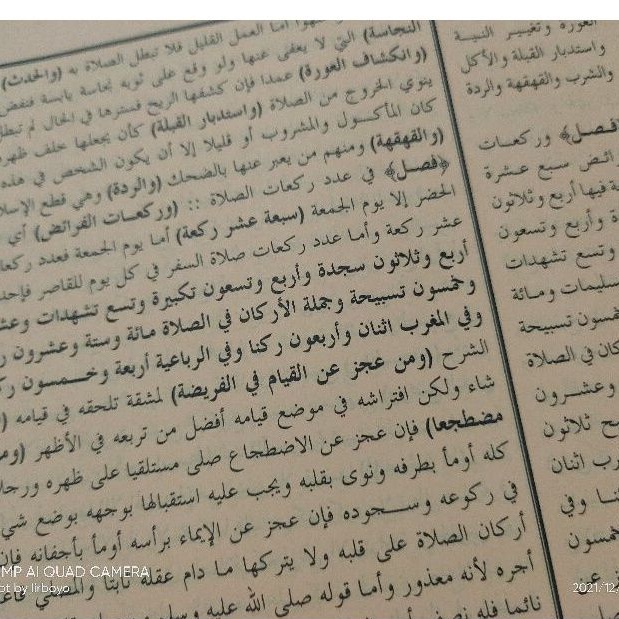 النجاسة) التي لا يعفى عنها ولو وقع على ثوبه نجاسة يابسة فنفض
أما العمل القليل فلا تبطل الصلاة به (والحدث)
(وانكشاف العورة) عمدا فإن كشفها الريح فسترها في الحال لم تبطل
ينوي الخروج من الصلاة (واستدبار القبلة) كأن يجعلها خلف ظهره
كان المأكول والمشروب أو قليلا إلا أن يكون الشخص في هذه
(والقهقهة) ومنهم من يعبر عنها بالضحك (والردة) وهي قطع الإسلا
﴿فصل﴾ في عدد ركعات الصلاة :: (وركعات الفرائض) أي
الحضر إلا يوم الجمعة (سبعة عشر ركعة) أما يوم الجمعة فعدد ركعا
عشر ركعة وأما عدد ركعات صلاة السفر في كل يوم للقاصر فإحد
أربع وثلاثون سجدة وأربع وتسعون تكبيرة وتسع تشهدات وعش
وخمسون تسبيحة وجملة الأركان في الصلاة مائة وستة وعشرون ر
وفي المغرب اثنان وأربعون ركنا وفي الرباعية أربعة وخمسون رك
الشرح (ومن عجز عن القيام في الفريضة) لمشقة تلحقه في قيامه
شاء ولكن افتراشه في موضع قيامه أفضل من تربعه في الأظهر (وم
مضطجعا) فإن عجز عن الاضطجاع صلى مستلقيا على ظهره ورجلا
كله أومأ بطرفه ونوى بقلبه ويجب عليه استقبالها بوجهه بوضع شي
في ركوعه وسجوده فإن عجز عن الإيماء برأسه أومأ بأجفانه فإن
أركان الصلاة على قلبه ولا يتركها ما دام عقله ثابتا والمصلي قاع
أجره لأنه معذور وأما قوله صلى الله عليه وسلم
نائما فله نصف
العورة وتغيير النية
واستدبار القبلة والأكل
والشرب والقهقهة والردة
﴿فصل﴾ وركعات
رائض سبع عشرة
ة فيها أربع وثلاثون
ة وأربع وتسعون
وتسع تشهدات
سليمات ومائة
خمسون تسبيحة
كان في الصلاة
وعشرون
ح ثلاثون
رب اثنان
نا وفي
خمسون
عن
MP AI QUAD CAMERA
ot by lirboyo
2021/12/